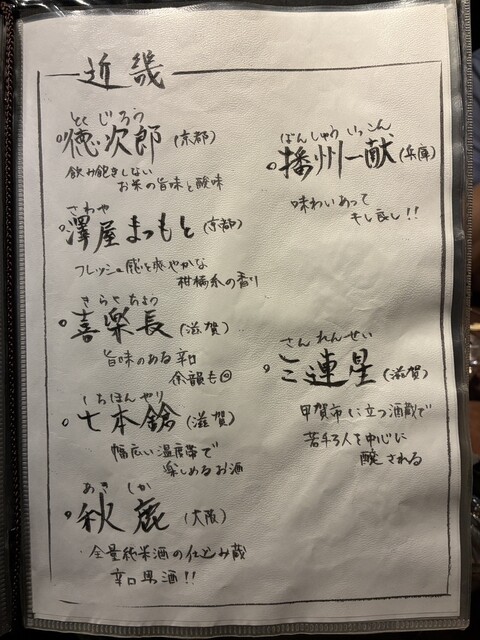 近畿
とくじろう
徳次郎(京都)
飲み飽きしない
お米の旨味と酸味
さわや
澤屋まつもと(京都)
フレッシュ感と爽やかな
柑橘系の香り
きらくちょう
喜楽長(滋賀)
旨味のある辛口
余韻も◎
しちほんやり
七本鎗(滋賀)
幅広い温度帯で
楽しめるお酒
あきしか
秋鹿(大阪)
全量純米酒の仕込み蔵
辛口男酒!!
ばんしゅういっこん
播州一献(兵庫)
味わいあって
キレ良し!!
さんれんせい
三連星(滋賀)
甲賀市に立つ酒蔵で
若手3人を中心に
醸される